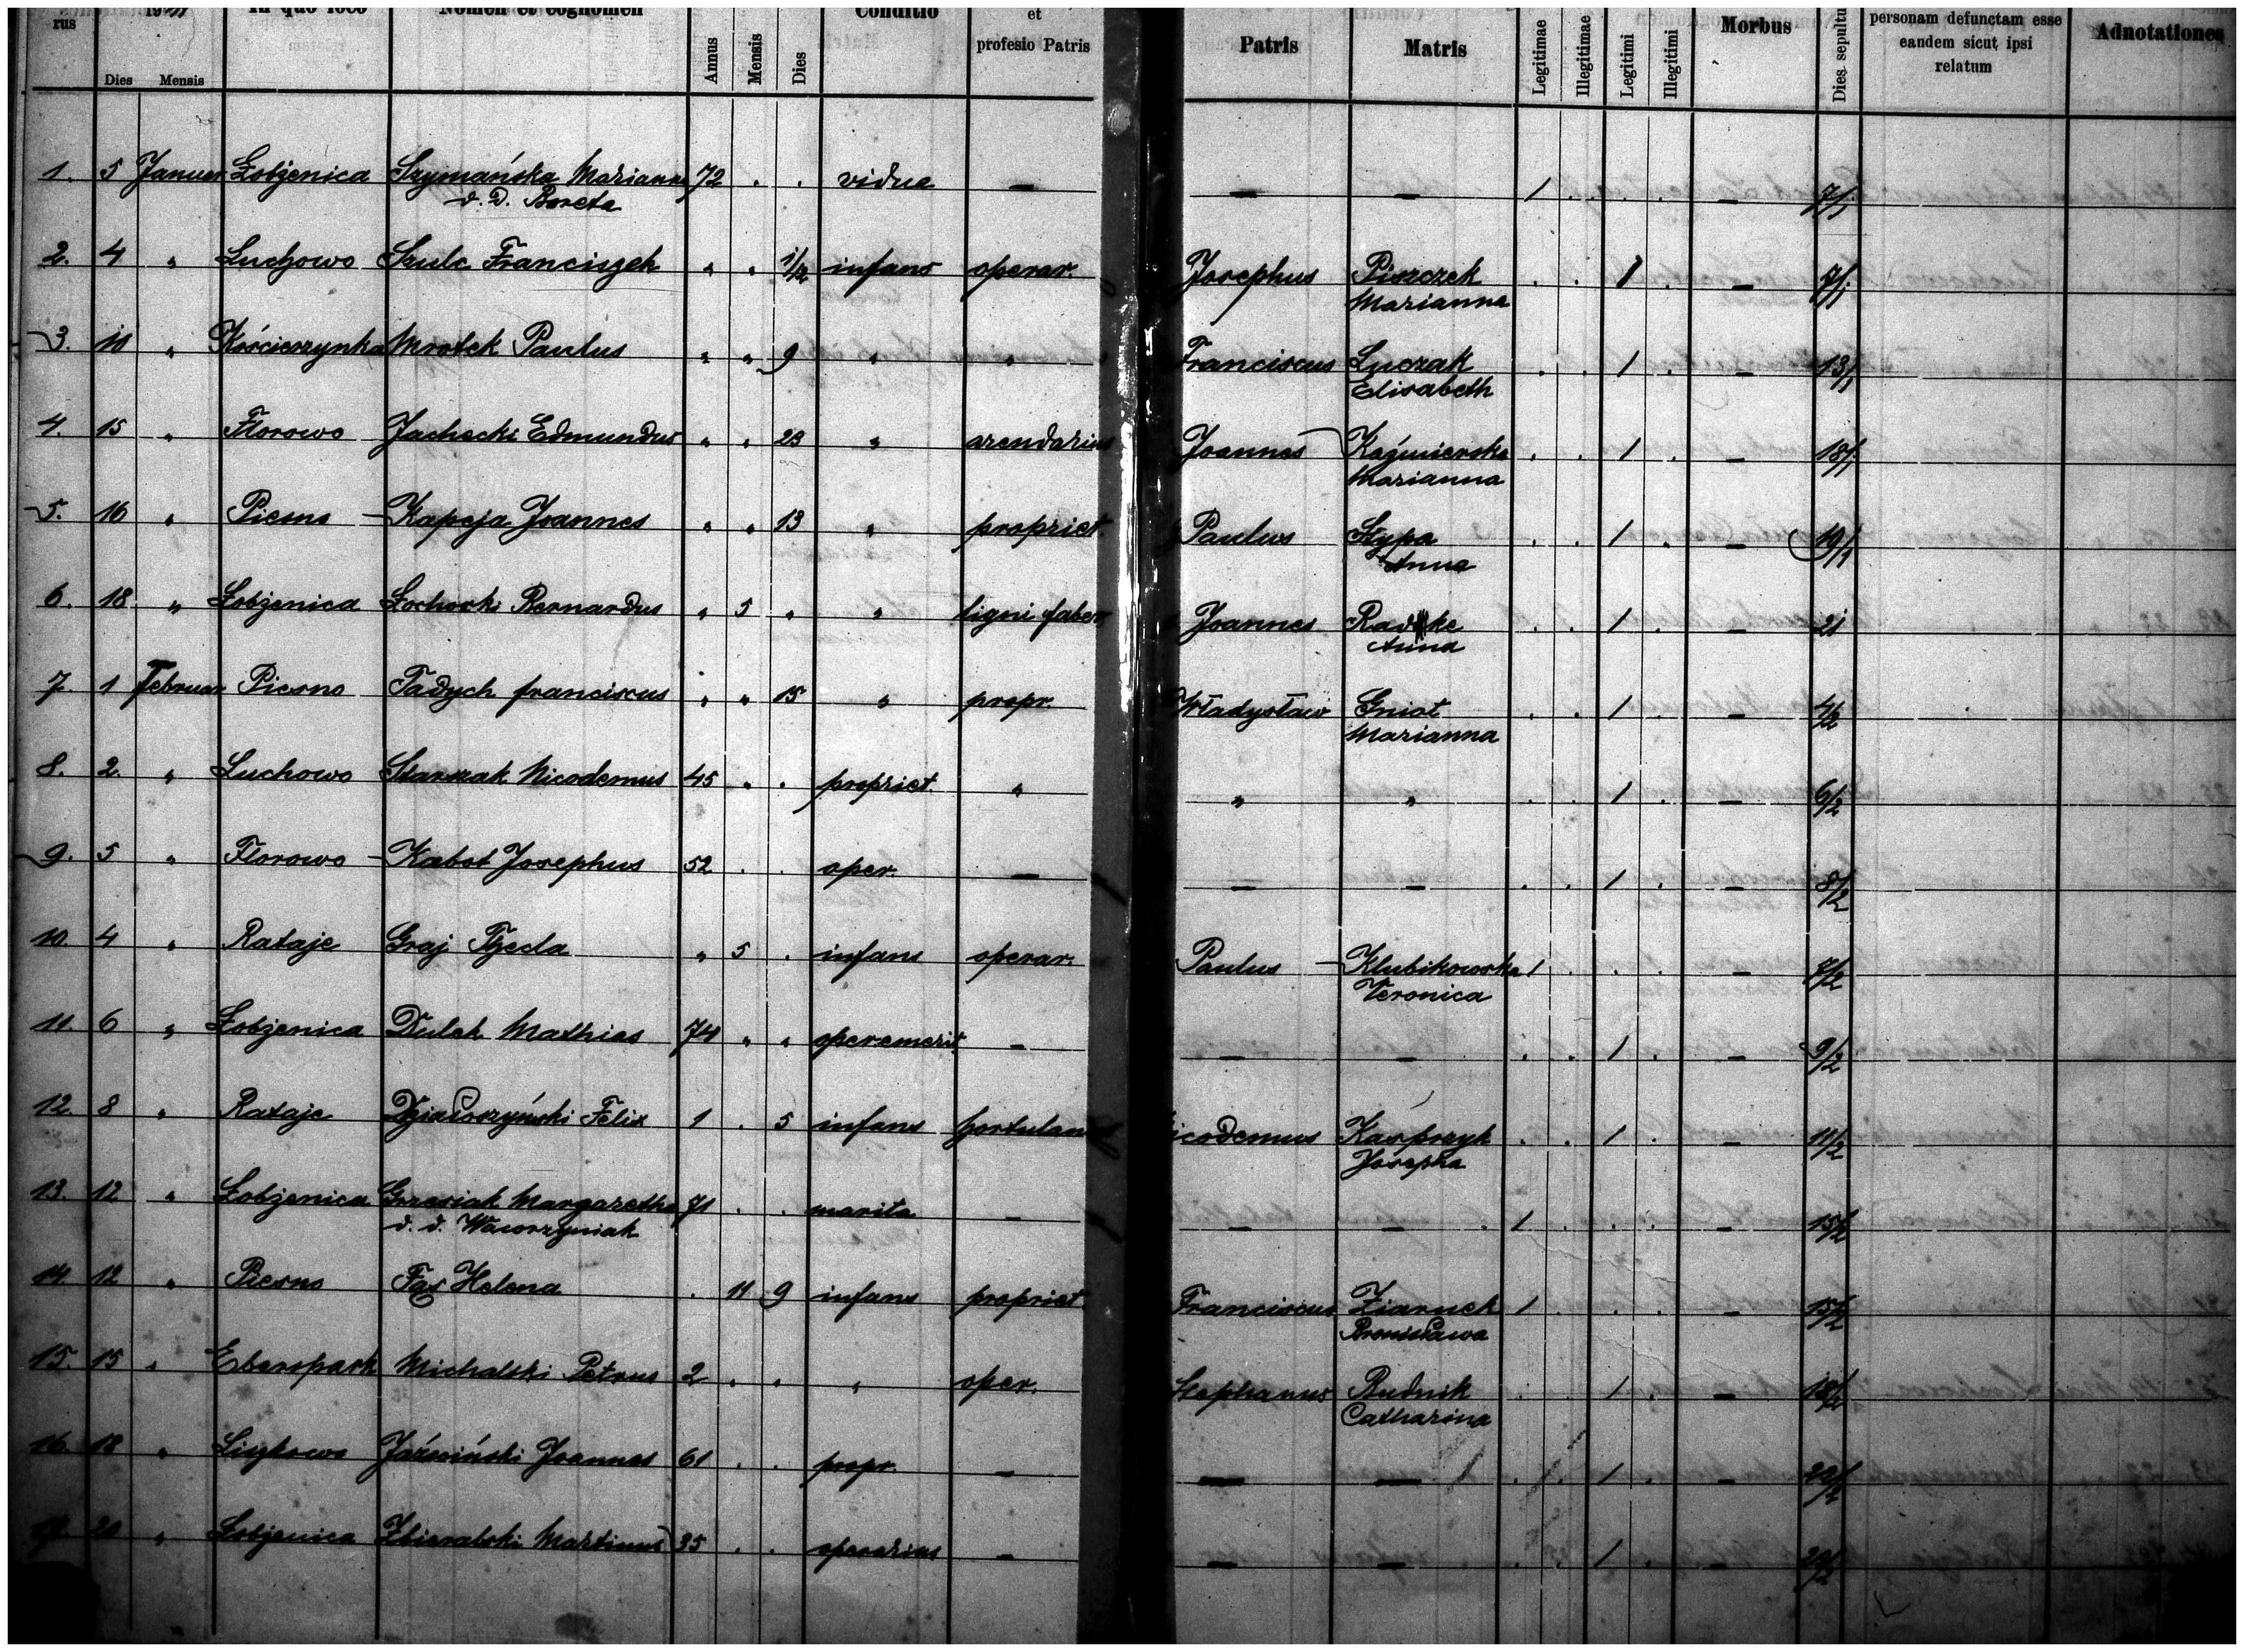 rus 19 In quo loco Nomen et cognomen Conditio et
profesio Patris Patris Matris Morbus personam defunctam esse
eandem sicut ipsi
relatum Adnotationes
Dies Mensis Annus Mensis Dies Legitimae Illegitimae Legitimi Illegitimi Dies sepultu
1. 5 Januar Łobżenica Szymańska Marianna 72 . . vidua — — — 1 . . . — 7/1
d. D. Boreta
2. 4 " Luchowo Szulc Franciszek " " 1/2 infans operar. Josephus Piszczek . . 1 . — 7/1
Marianna
3. 10 " Kościerzynka Mrotek Paulus " " 9 " " Franciscus Luczak . . 1 . — 13/1
Elisabeth
4. 15 " Florowo Jachecki Edmundus " " 23 " arendarius Joannes Kaźmierska . . 1 . — 18/1
Marianna
5. 16 " Piesno Kapeja Joannes " " 13 " propriet. Paulus Stypa . . 1 . — 19/1
Anna
6. 18 " Łobżenica Łochocki Bernardus " 5 " " ligni faber Joannes . . 1 . — 21
Anna
7. 1 Februar Piesno Tadych franciscus " " 15 " propr. Władysław Gniot . . 1 . — 4/2
Marianna
8. 2. " Luchowo Starszak Nicodemus 45 " . propriet. " " " . . 1 . — 6/2
9. 5 " Florowo Kabat Josephus 52 . . oper. — — — . . 1 . — 8/2
10. 4 " Rataje Graj Thecla " 5 . infans operar. Paulus Klubikowska 1 . . . — 7/2
Veronica
11. 6 " Łobżenica Dulek Mathias 74 " " oper. emerit. — — — . . 1 . — 9/2
12. 8 " Rataje Działoszyński Felix 1 . 5 infans hortulanus icodemus Kasprzyk . . 1 . — 11/2
Josepha
13. 12 " Łobżenica Grzesiak Margaretha 71 . . marita — — — . 1 . . . — 15/2
d. d. Wawrzyniak
14. 12 " Piesno Fas Helena . 11 9 infans propriet. Franciscus Ziarnek 1 . . . — 15/2
Bronisława
15. 15 " Eberspark Michalski Petrus 2 . . " oper. Stephanus Rudnik . . 1 . — 18/2
Catharina
16. 18 " Liszkowo Jaźwiński Joannes 61 . . propr. — — — . 1 . — 22/2
17. 20 " Łobżenica Zbieralski Martinus 35 . . operarius — — — . . 1 . —